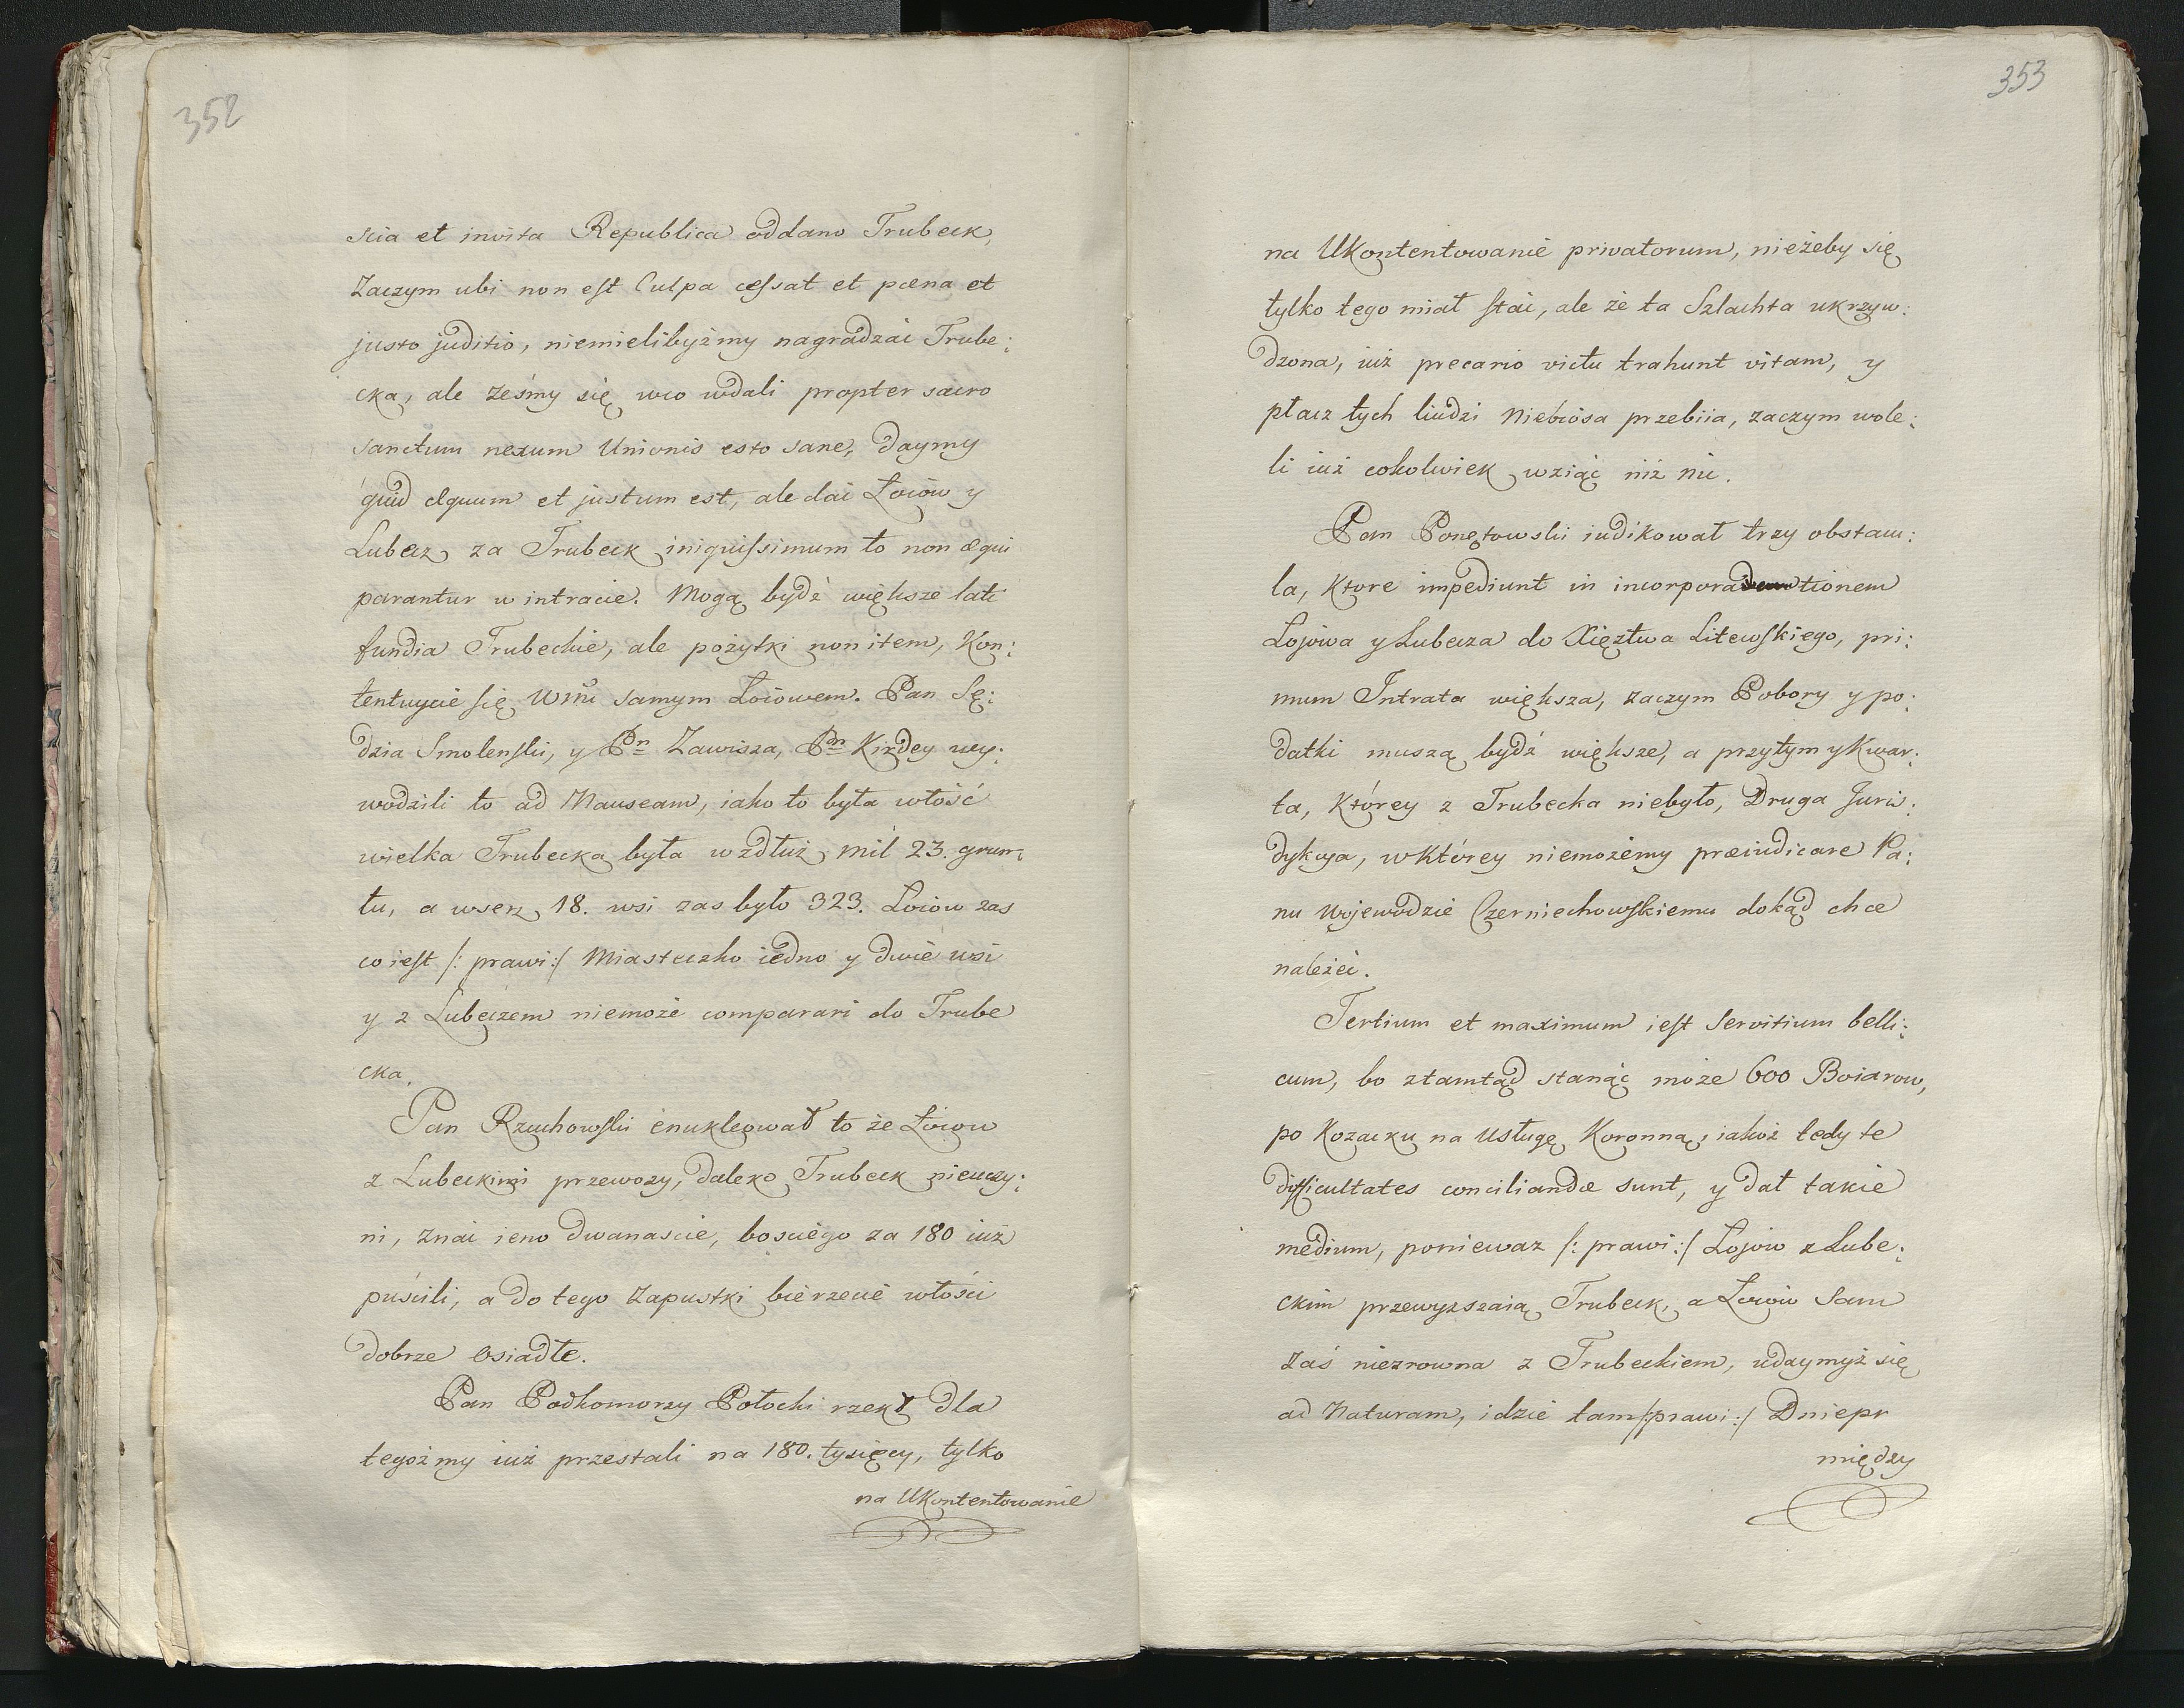 352
scia et invita Republica oddano Trubeck,
Zaczym ubi non est Culpa cessat et pœna et
justo juditio, niemielibyżmy nagradzać Trube:
cka, ale żeśmy się wco wdali propter sacro
sanctum nexum Unionis esto sane, daymy
quid æquum et justum est, ale dać Łoiow y
Lubecz za Trubeck iniquissimum to non æqui
parantur w intracie. Mogą bydź większe lati
fundia Trubeckie, ale pożytki non item, Kon:
tentuycie się Wm samym Łoiowem. Pan Sę:
dzia Smolenski, y Pn Zawisza, Pn Kirdey wy:
wodzili to ad Nauseam, iako to była włość
wielka Trubecka była wzdłuż mil 23. grun:
tu, a wserz 18. wsi zas było 323. Łoiow zas
co iest /: prawi :/ Miasteczko iedno y dwie wsi
y z Lubeczem niemoże comparari do Trube
cka.
Pan Rzuchowski enukleował to że Łoiow
z Lubeckimi przewozy, daleko Trubeck nieuczy:
ni, znać ieno dwanascie, bosciego za 180 iuż
puścili, a do tego Zapustki bierzecie włości
dobrze osiadłe.
Pan Podkomorzy Połocki rzekł dla
tegożmy iuż przestali na 180. tysięcy, tylko
na Ukontentowanie
353
na Ukontentowanie privatorum, nieżeby się
tylko tego miał stać, ale że ta Szlachta ukrzyw:
dzona, iuż precario victu trahunt vitam, y
płacz tych liudzi Niebiosa przebiia, zaczym wole:
li iuż cokolwiek wziąć niż nic.
Pan Ponętowski iudikował trzy obstacu:
la, Ktore impediunt in incorporationem
Łojowa y Lubecza do Xięztwa Litewskiego, pri:
mum Intrata większa, zaczym Pobory y po:
datki muszą bydź większe, a przytym y Kwar:
ta, Którey z Trubecka niebyło, Druga Juris:
dykcya, w Którey niemożemy præiudicare Pa:
nu Wojewodzie Czerniechowskiemu dokąd chce
należeć.
Tertium et maximum iest Servitium belli:
cum, bo ztamtąd stanąć może 600 Boiarow,
po Kozacku na Usługę Koronną, iakoż tedy te
difficultates conciliandæ sunt, y dał takie
medium, poniewaz /: prawi :/ Łojow z Lube:
ckim przewyzszaią Trubeck, a Łoiow Sam
Zaś niezrowna z Trubeckiem, udaymyż się
ad Naturam, idzie tam /: prawi :/ Dniepr
między